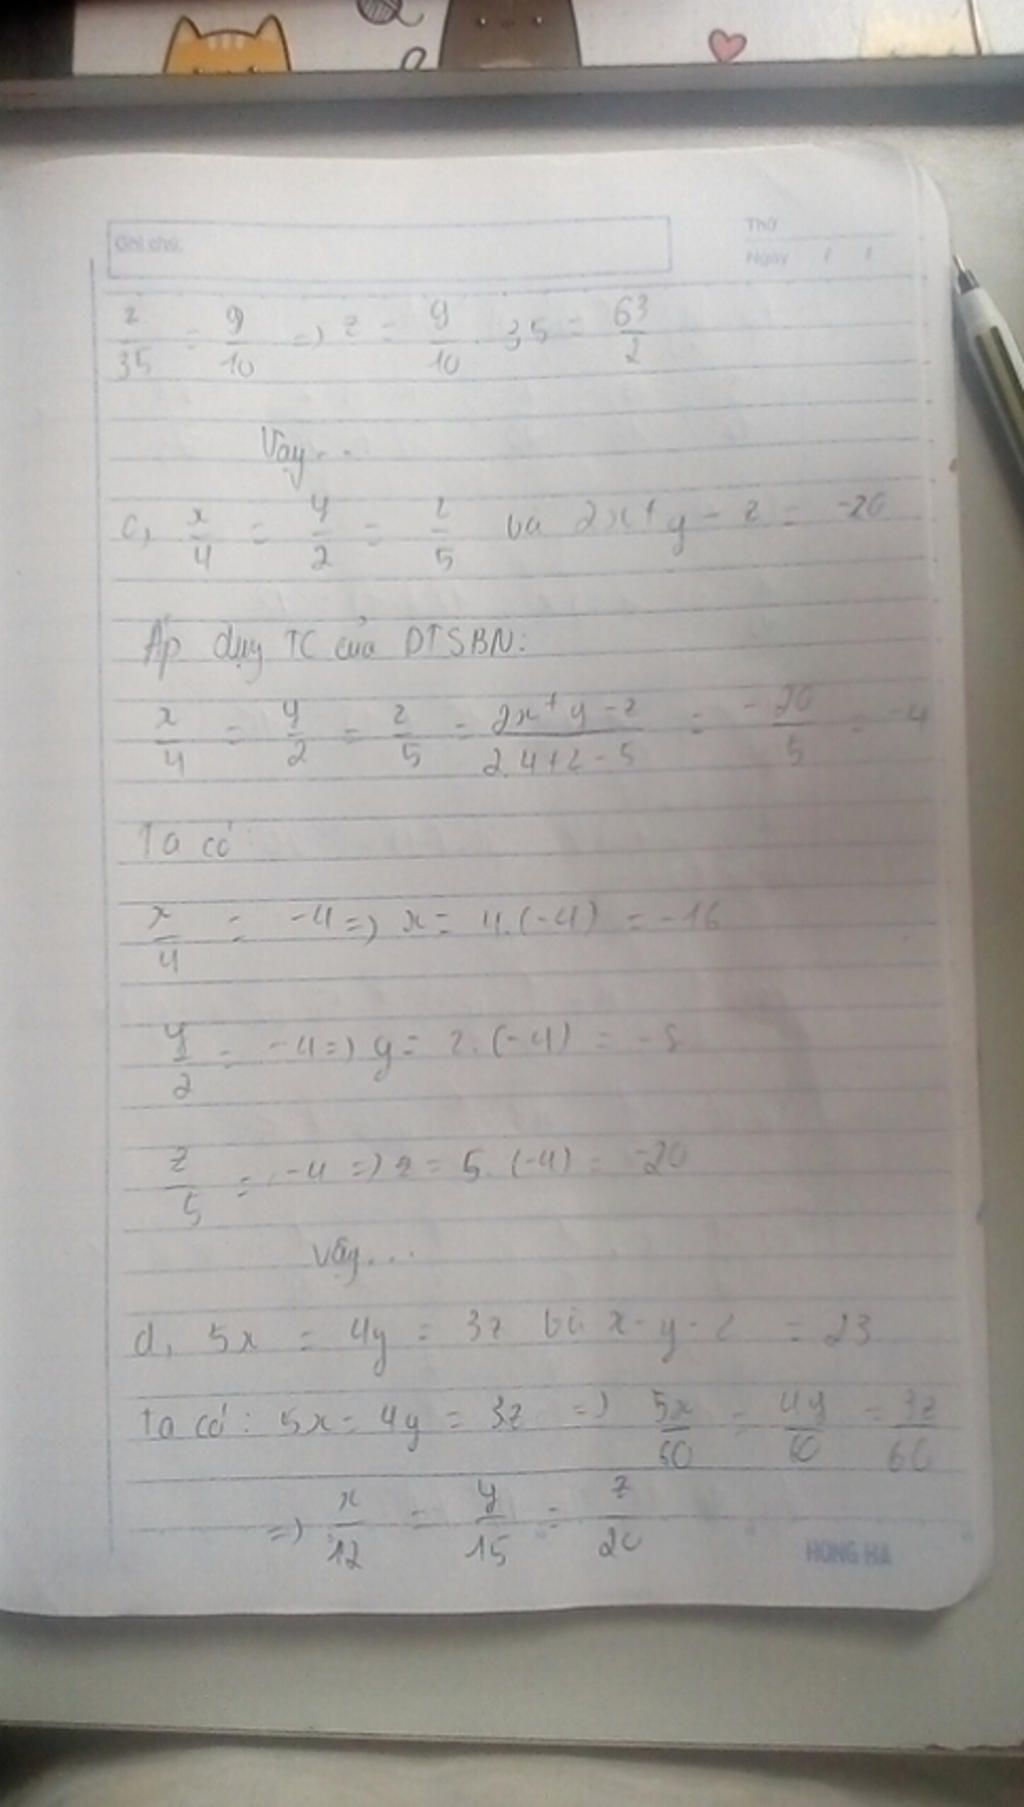 Ghi chú:
Thứ
Ngày / /
z/35 = 9/10 => z = 9/10 . 35 = 63/2
Vậy...
c, x/4 = y/2 = z/5 và 2x + y - z = -20
Áp dụng TC của DTSBN:
x/4 = y/2 = z/5 = 2x + y - z / 2.4 + 2 - 5 = -20/5 = -4
Ta có:
x/4 = -4 => x = 4.(-4) = -16
y/2 = -4 => y = 2.(-4) = -8
z/5 = -4 => z = 5.(-4) = -20
Vậy...
d, 5x = 4y = 3z và x - y - z = 23
Ta có: 5x = 4y = 3z => 5x/60 = 4y/60 = 3z/60
=> x/12 = y/15 = z/20
HONG HA